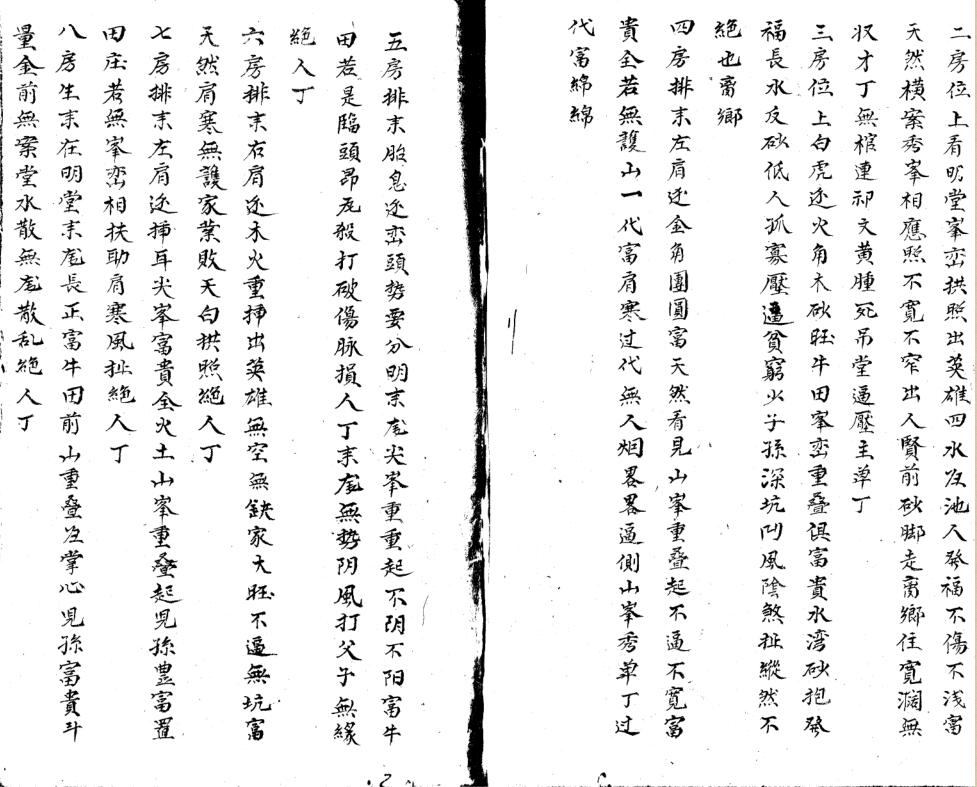 二房位上看明堂峯峦拱照出英雄四水归池人發福不傷不浅富
天然横案秀峯相應照不寛不窄出人賢前砂脚走离鄉住寛濶無
収才丁無棺連祁文黄腫死吊堂逼壓主单丁
三房位上白虎迯火角木砂旺牛田峯峦重叠俱富貴水湾砂抱發
福長水反砂低人孤寡壓逼貧窮少子孫深坑凹風陰煞扯縱然不
絕也离鄉
四房排来左肩迯金角團圓富天然看見山峯重叠起不逼不寛富
貴全若無護山一代富肩寒过代無人烟畧畧逼側山峯秀单丁过
代富綿綿
五房排来胎息迯峦頭势要分明来龙尖峯重重起不阴不阳富牛
田若是臨頭昂瓦殺打破傷脉損人丁来龙無势阴風打父子無緣
絕人丁
六房排来右肩迯木火重揷出英雄無空無鈌家大旺不逼無坑富
天然肩寒無護家業敗天白拱照絕人丁
七房排来左肩迯揷耳尖峯富貴全火土山峯重叠起児孫豊富置
田庄若無峯峦相扶助肩寒風扯絕人丁
八房生来在明堂来龙長正富牛田前山重叠归掌心児孫富貴斗
量金前無案堂水散無龙散乱絕人丁